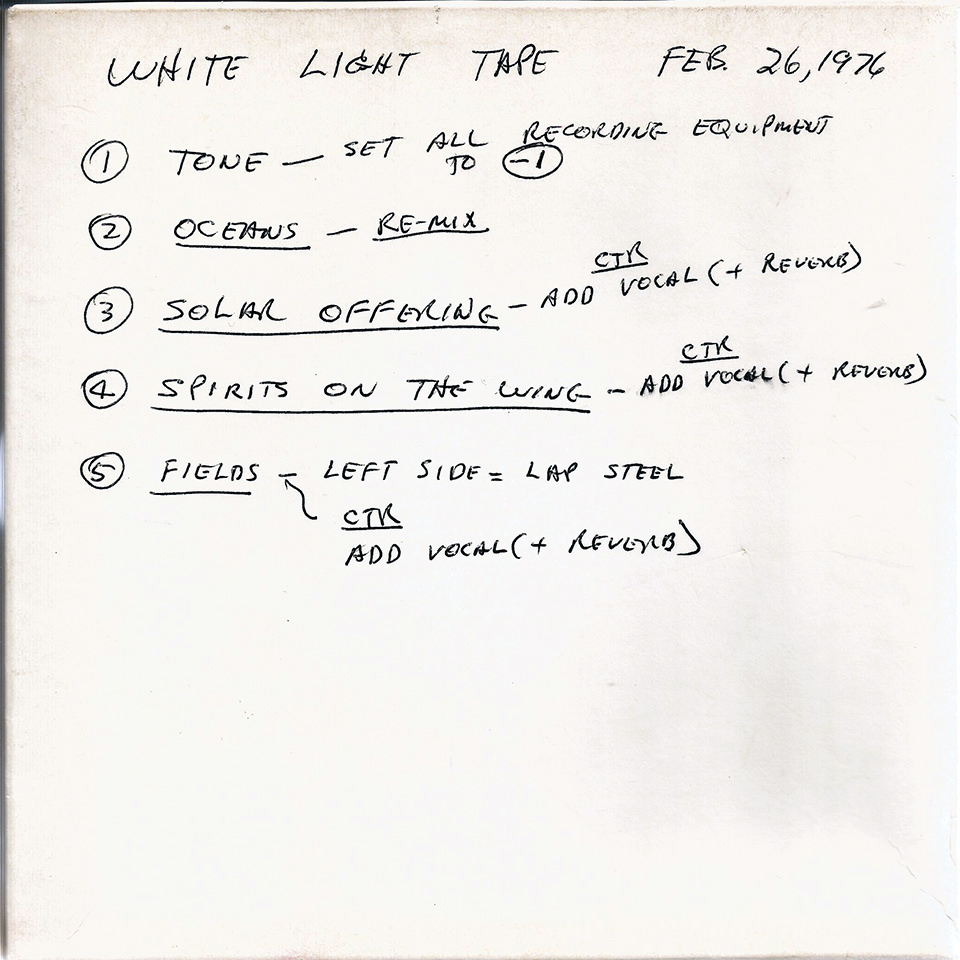 WHITE LIGHT TAPE FEB. 26, 1976
① TONE — SET ALL RECORDING EQUIPMENT
TO -1
② OCEANS — RE-MIX
CTR
③ SOLAR OFFERING - ADD VOCAL (+ REVERB)
CTR
④ SPIRITS ON THE WING - ADD VOCAL (+ REVERB)
⑤ FIELDS - LEFT SIDE = LAP STEEL
CTR
ADD VOCAL (+ REVERB)